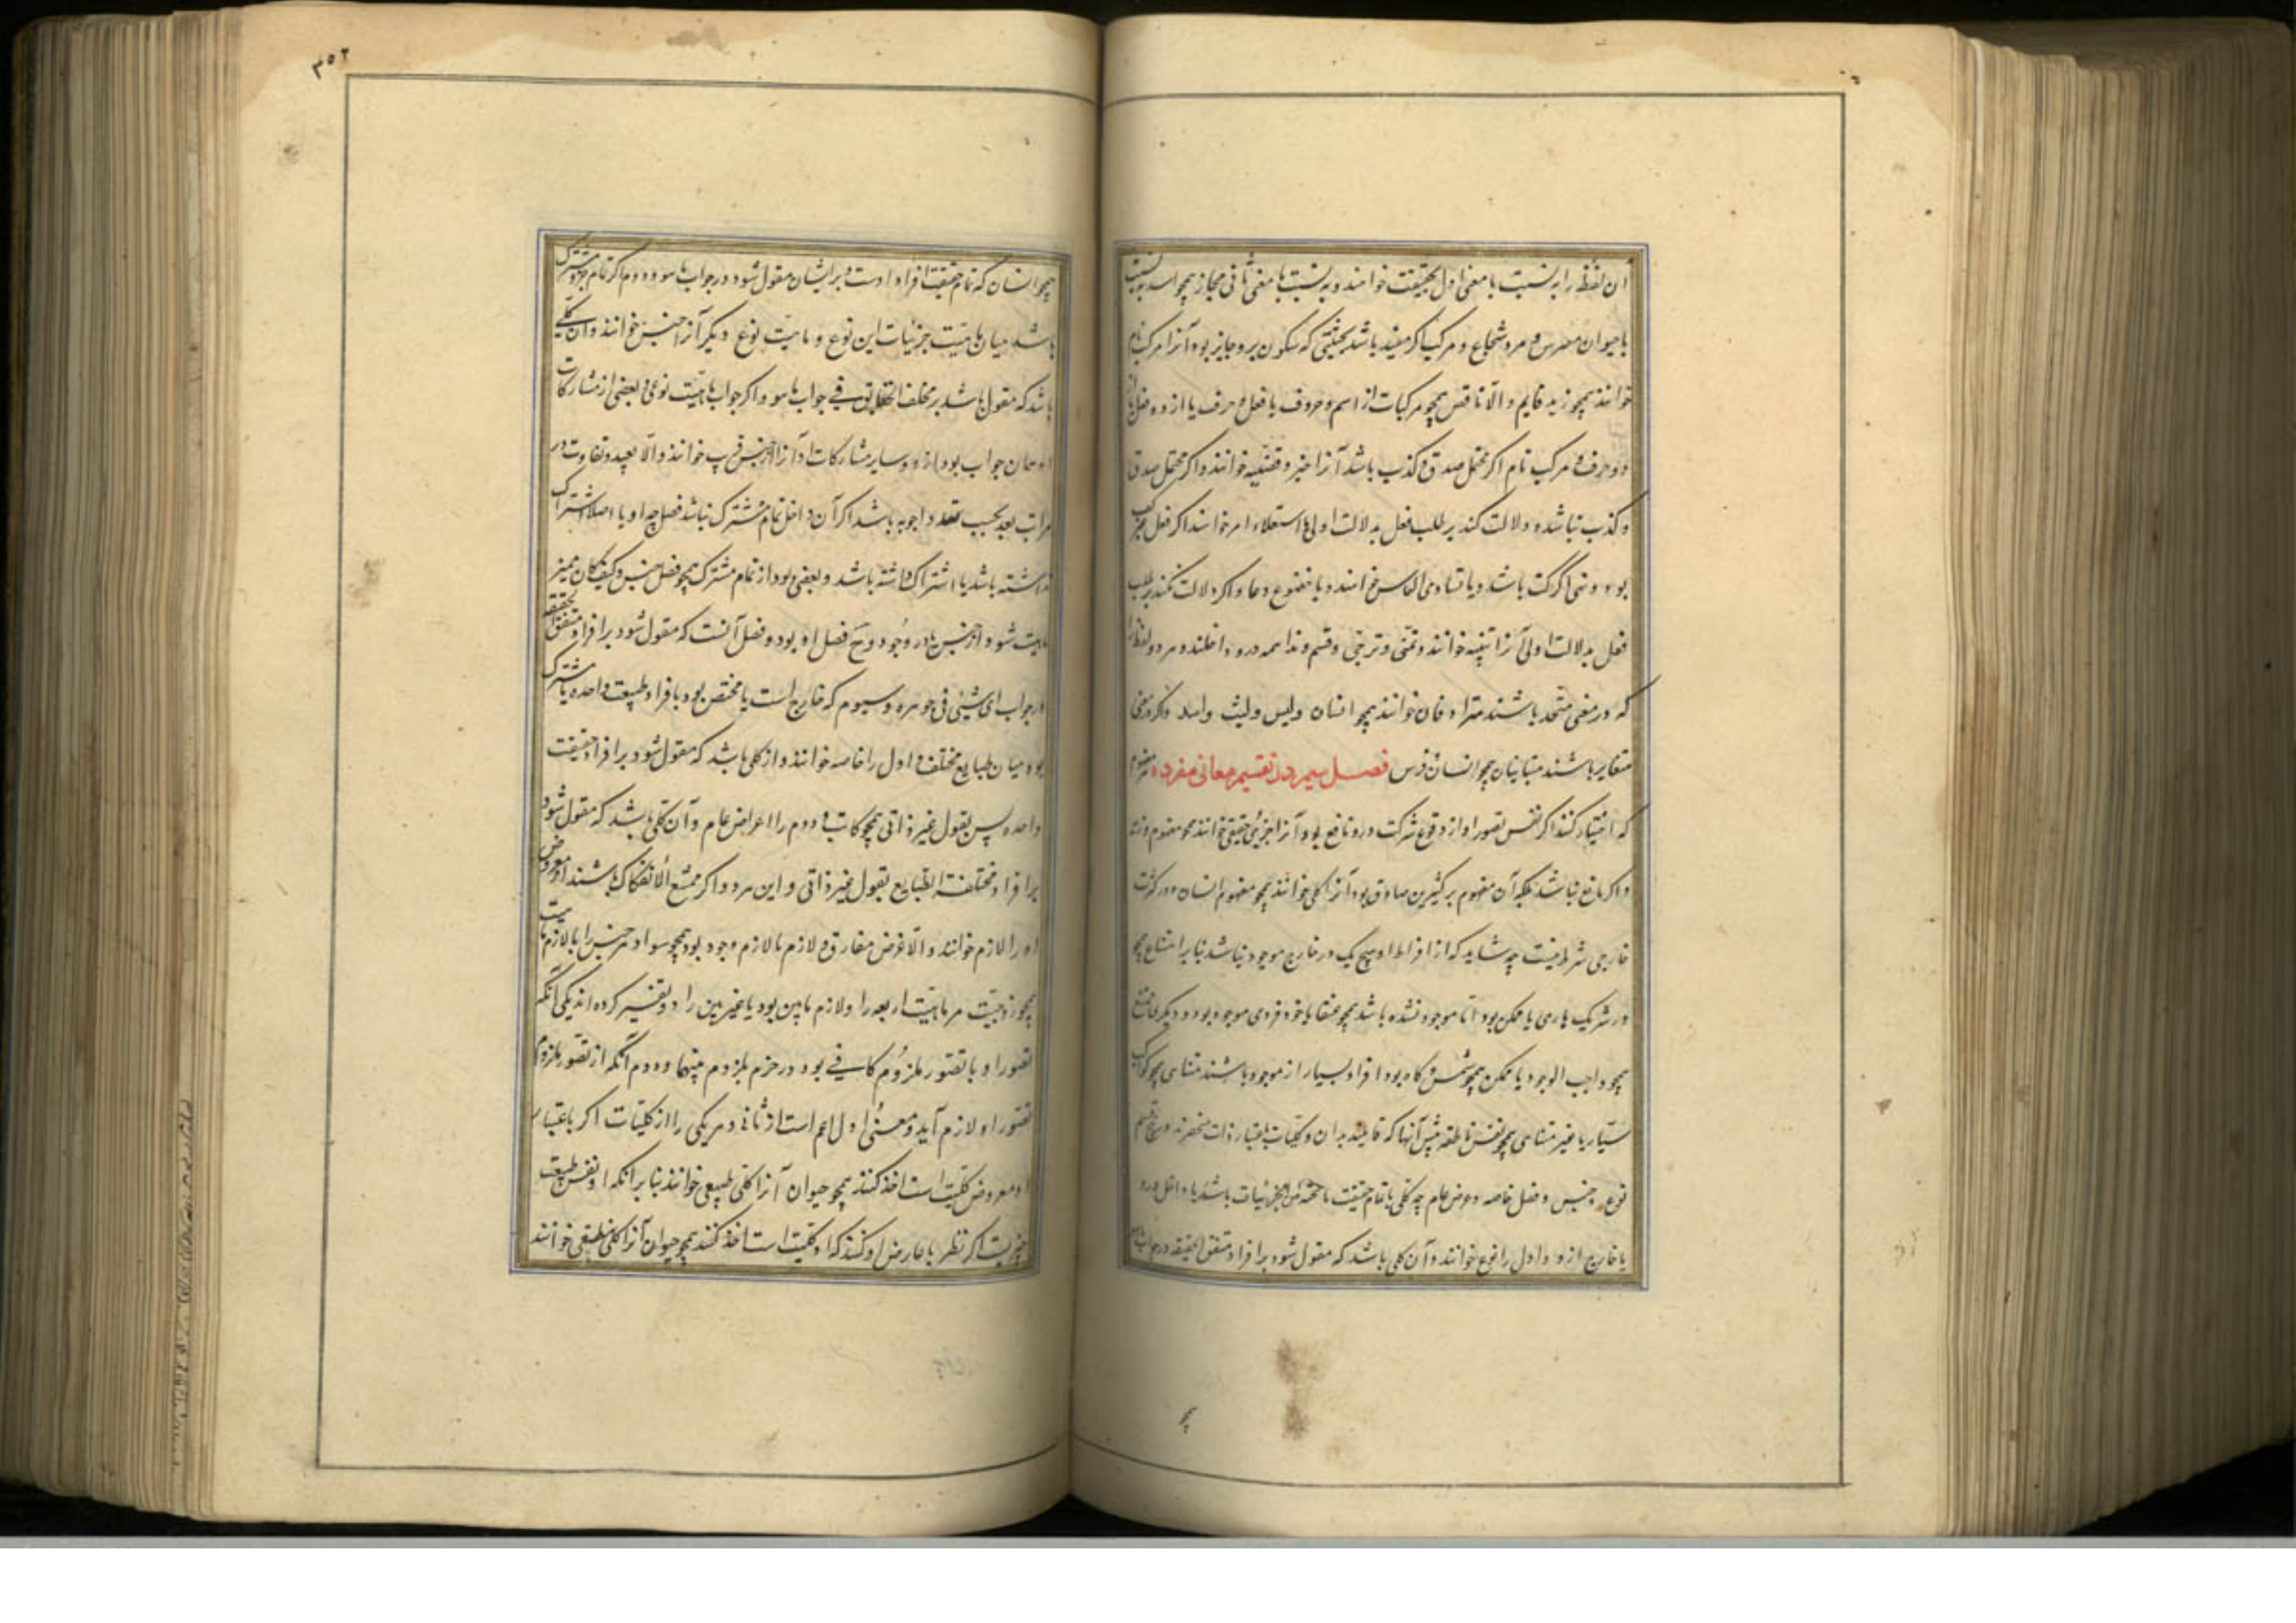 آن لفظ را به نسبت با معنی اول حقیقت خوانند و به نسبت با معنی ثانی مجاز همچو اسد به نسبت
با حیوان مفترس و مرد شجاع و مرکب اگر مفید باشد بحیثیتی که سکون برو جایز بود آنرا مرکب تام
خوانند همچو زید قایم و الّا ناقص همچو مرکبات از اسم و حروف یا فعل و حرف یا از دو فعل یا از
دو حرف و مرکب تام اگر محتمل صدق و کذب باشد آنرا خبر و قضیه خوانند و اگر محتمل صدق
و کذب نباشد و دلالت کند بر طلب فعل بدلالت اولی با استعلاء امر خوانند اگر فعل غیر کف
بود و نهی اگر کف باشد و با تساوی التماس خوانند و با خضوع دعا و اگر دلالت نکند بر طلب
فعل بدلالت اولی آنرا تنبیه خوانند و تمنّی و ترجّی و قسم و ندا همه درو داخلند و هر دو لفظ را
که در معنی متحد باشند مترادفان خوانند همچو انسان ولیس ولیث واسد واگر در معنی
متغایر باشند متباینان همچو انسان و فرس فصل سیم در تقسیم معانی مفرده هر مفهوم
که اختیار کنند اگر نفس تصور او از وقوع شرکت درو مانع بود آنرا جزئی حقیقی خوانند همچو مفهوم زید
و اگر مانع نباشد بلکه آن مفهوم بر کثیرین صادق بود آنرا کلی خوانند همچو مفهوم انسان و در کثرت
خارجی شرط نیست چه شاید که از افراد او هیچ یک در خارج موجود نباشد بنا بر امتناع همچو
در شریک باری یا ممکن بود امّا موجود نشده باشد همچو عنقا یا خود فردی موجود بود و دیگر ممتنع
همچو واجب الوجود یا ممکن همچو شمس و گاه بود افراد بسیار ازو موجود باشند متناهی همچو کواکب
سیّار یا غیر متناهی همچو نفس ناطقه پیش آنها که قایلند بدان و کلیات باعتبار ذات منحصرند در پنج قسم
نوع و جنس و فصل و خاصه و عرض عام چه کلی یا تمام حقیقت ما تحته من الجزئیات باشد یا داخل درو
یا خارج ازو و اول را نوع خوانند و آن کلی باشد که مقول شود بر افراد متفق الحقیقه در جواب ما هو
همچو
۳۵۲
همچو انسان که تمام حقیقت افراد اوست و بر ایشان مقول شود در جواب ما هو و دوم اگر تمام جزو مشترک
باشد میان ماهیّت جزئیات این نوع و ماهیّت نوع دیگر آنرا جنس خوانند و آن کلّی
باشد که مقول باشد بر مختلف الحقایق فی جواب ما هو و اگر جواب ماهیّت نوعی و بعضی از مشارکات
او همان جواب بود ازو و سایر مشارکات او آنرا جنس قریب خوانند و الّا بعید و تفاوت در
مراتب بعد بحسب تعدد اجوبه باشد اگر آن داخل تمام مشترک نباشد فصل چه او یا اصلا اشتراک
نداشته باشد یا اشتراک داشته باشد و بعضی بود از تمام مشترک همچو فصل جنس و کیف کان ممیز
ماهیت شود از جنس یا در وجود و ح فصل او بود و فصل آنست که مقول شود بر افراد متفق الحقیقه
در جواب ای شیئی فی جوهره و سیوم که خارج است یا مختص بود بافراد طبیعت واحده یا مشترک
بود میان طبایع مختلفه و اول را خاصه خوانند و از کلی باشد که مقول شود بر افراد حقیقت
واحده پس بقول غیر ذاتی همچو کاتب و دوم را اعراض عام و آن کلّی باشد که مقول شود
بر افراد مختلفة الطبایع بقول غیر ذاتی و این هر دو اگر ممتنع الانفکاک باشند از معروض
او را لازم خوانند و الّا عرض مفارق و لازم یا لازم وجود بود همچو سواد مر حبش را یا لازم ماهیت
همچو زوجیّت مر ماهیّت اربعه را و لازم یا بین بود یا غیر بین را دو تفسیر کرده اند یکی آنکه
تصور او با تصور ملزوم کافی بود در جزم بلزوم بینهما و دوم آنکه از تصور ملزوم
تصور او لازم آید و معنی اول اعم است از ثانی و هر یکی را از کلیات اگر باعتبار
او معروض کلیّت است اخذ کنند همچو حیوان آنرا کلّی طبیعی خوانند بنا بر آنکه او نفس طبیعت
خیریت اگر نظر با عارض او کنند که او کلیّت است اخذ کنند همچو حیوان آنرا کلّی منطقی خوانند